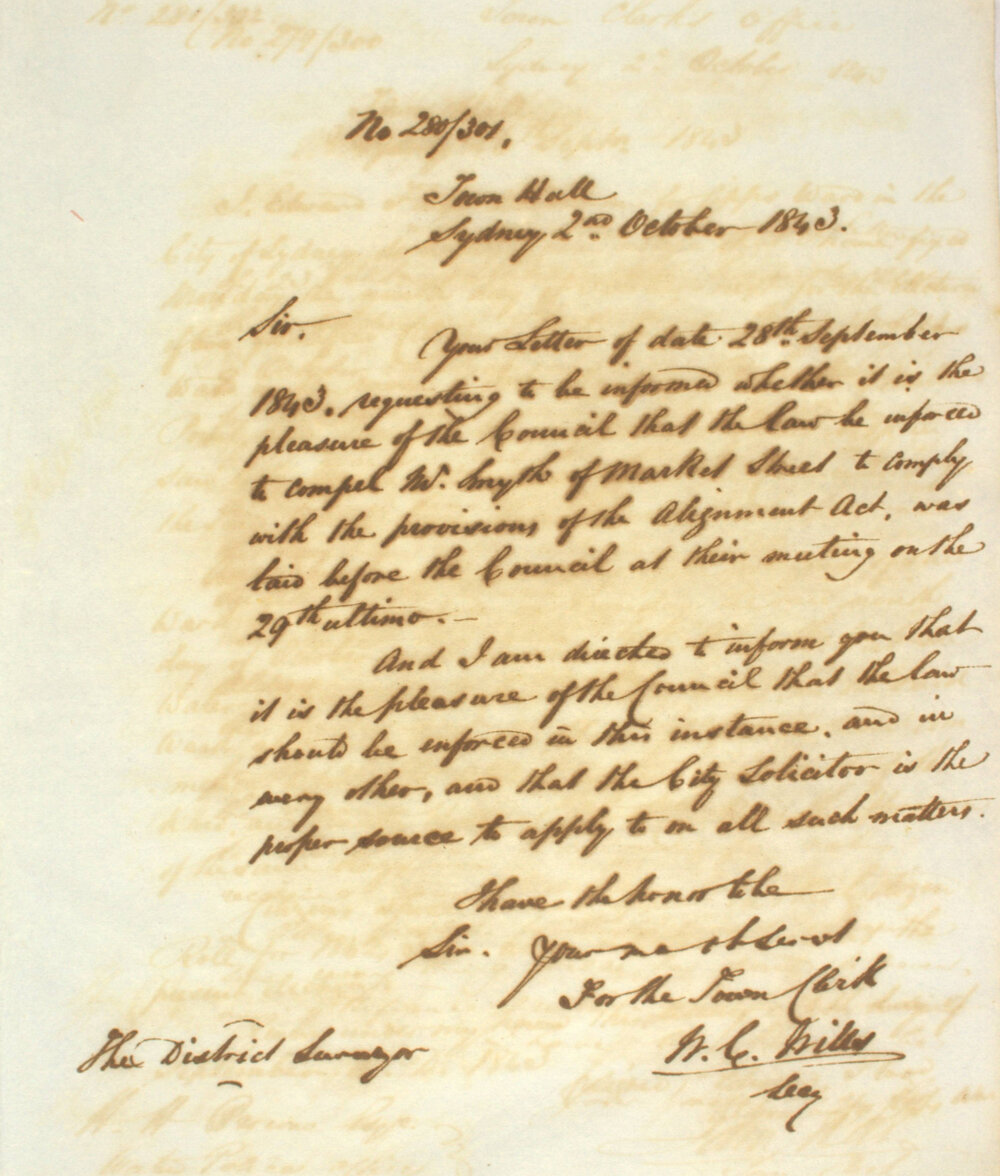 No 280/301.
Town Hall
Sydney 2nd. October 1843.
Sir.
Your Letter of date 28th. September
1843. requesting to be informed whether it is the
pleasure of the Council that the law be inforced
to compel Mr. Smyth of Market Street to comply
with the provisions of the Alignment Act, was
laid before the Council at their meeting on the
29th ultimo. –
And I am directed to inform you that
it is the pleasure of the Council that the law
should be enforced in this instance, and in
every other, and that the City Solicitor is the
proper source to apply to on all such matters.
I have the honor to be
Sir. Your mo ob servt
For the Town Clerk
The District Surveyor
W. C. Wills
Secy